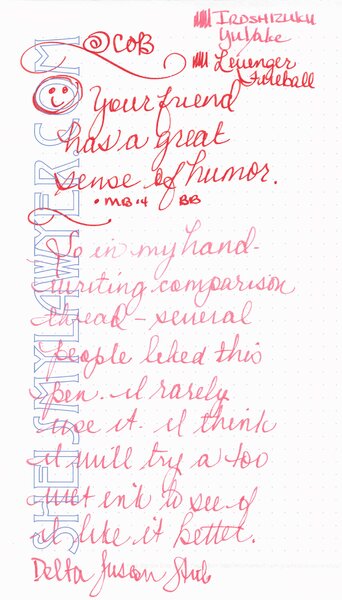 IROSHIZUKU
YuYake
@COB
Levenger
Fireball
Your friend
has a great
sense of humor.
• MB·4 BB
So in my hand-
writing comparison
thread - several
people liked this
pen. I rarely
use it. I think
it will try a too
wet ink to see if
I like it better.
Delta Fusion Stub
SHEISMYLAWYER.COM